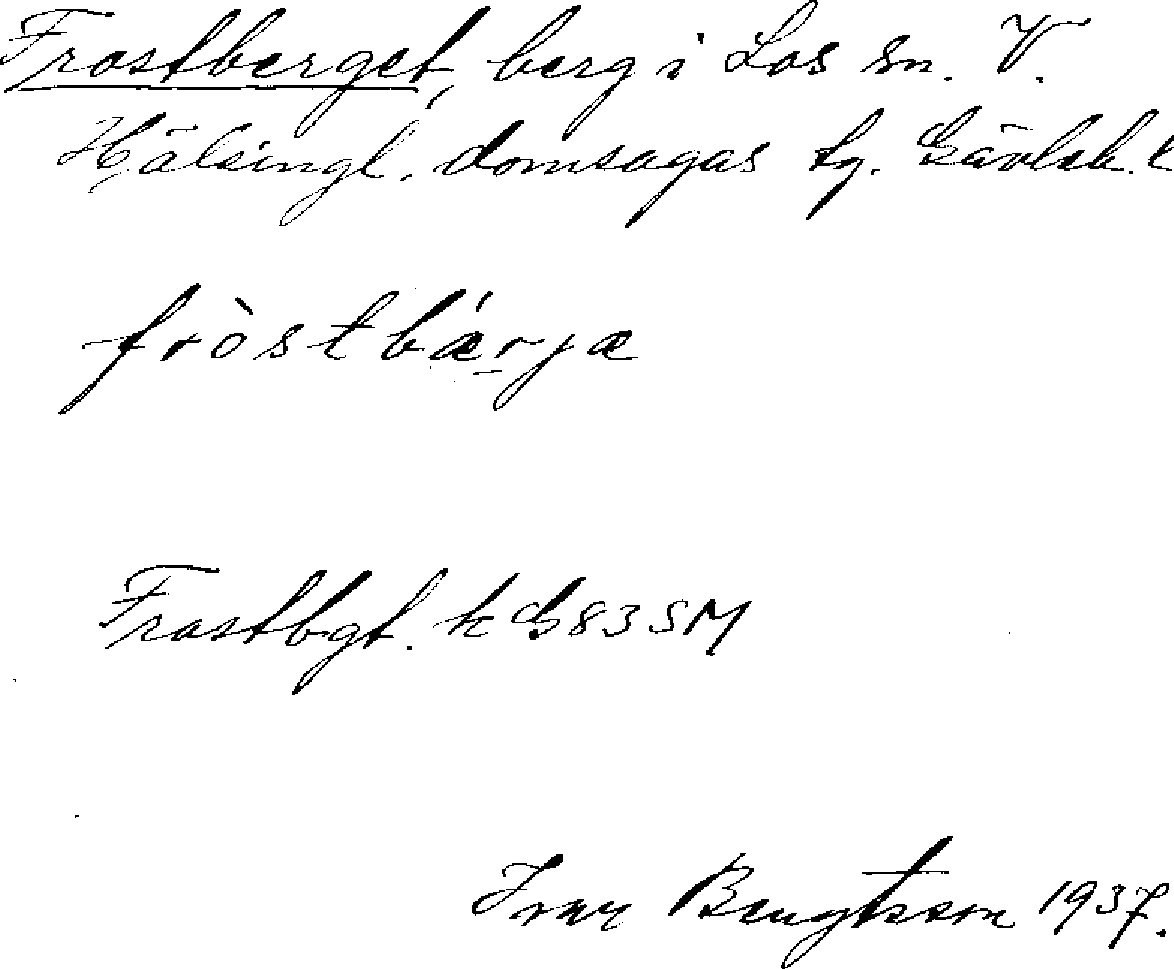 Frostberget, berg i Los sn. V.
Hälsingl. domsagas tg. Gävleb. l
fròstbǽrjæ
Frostbgt. k G83SM
Ivar Bengtsson 1937.